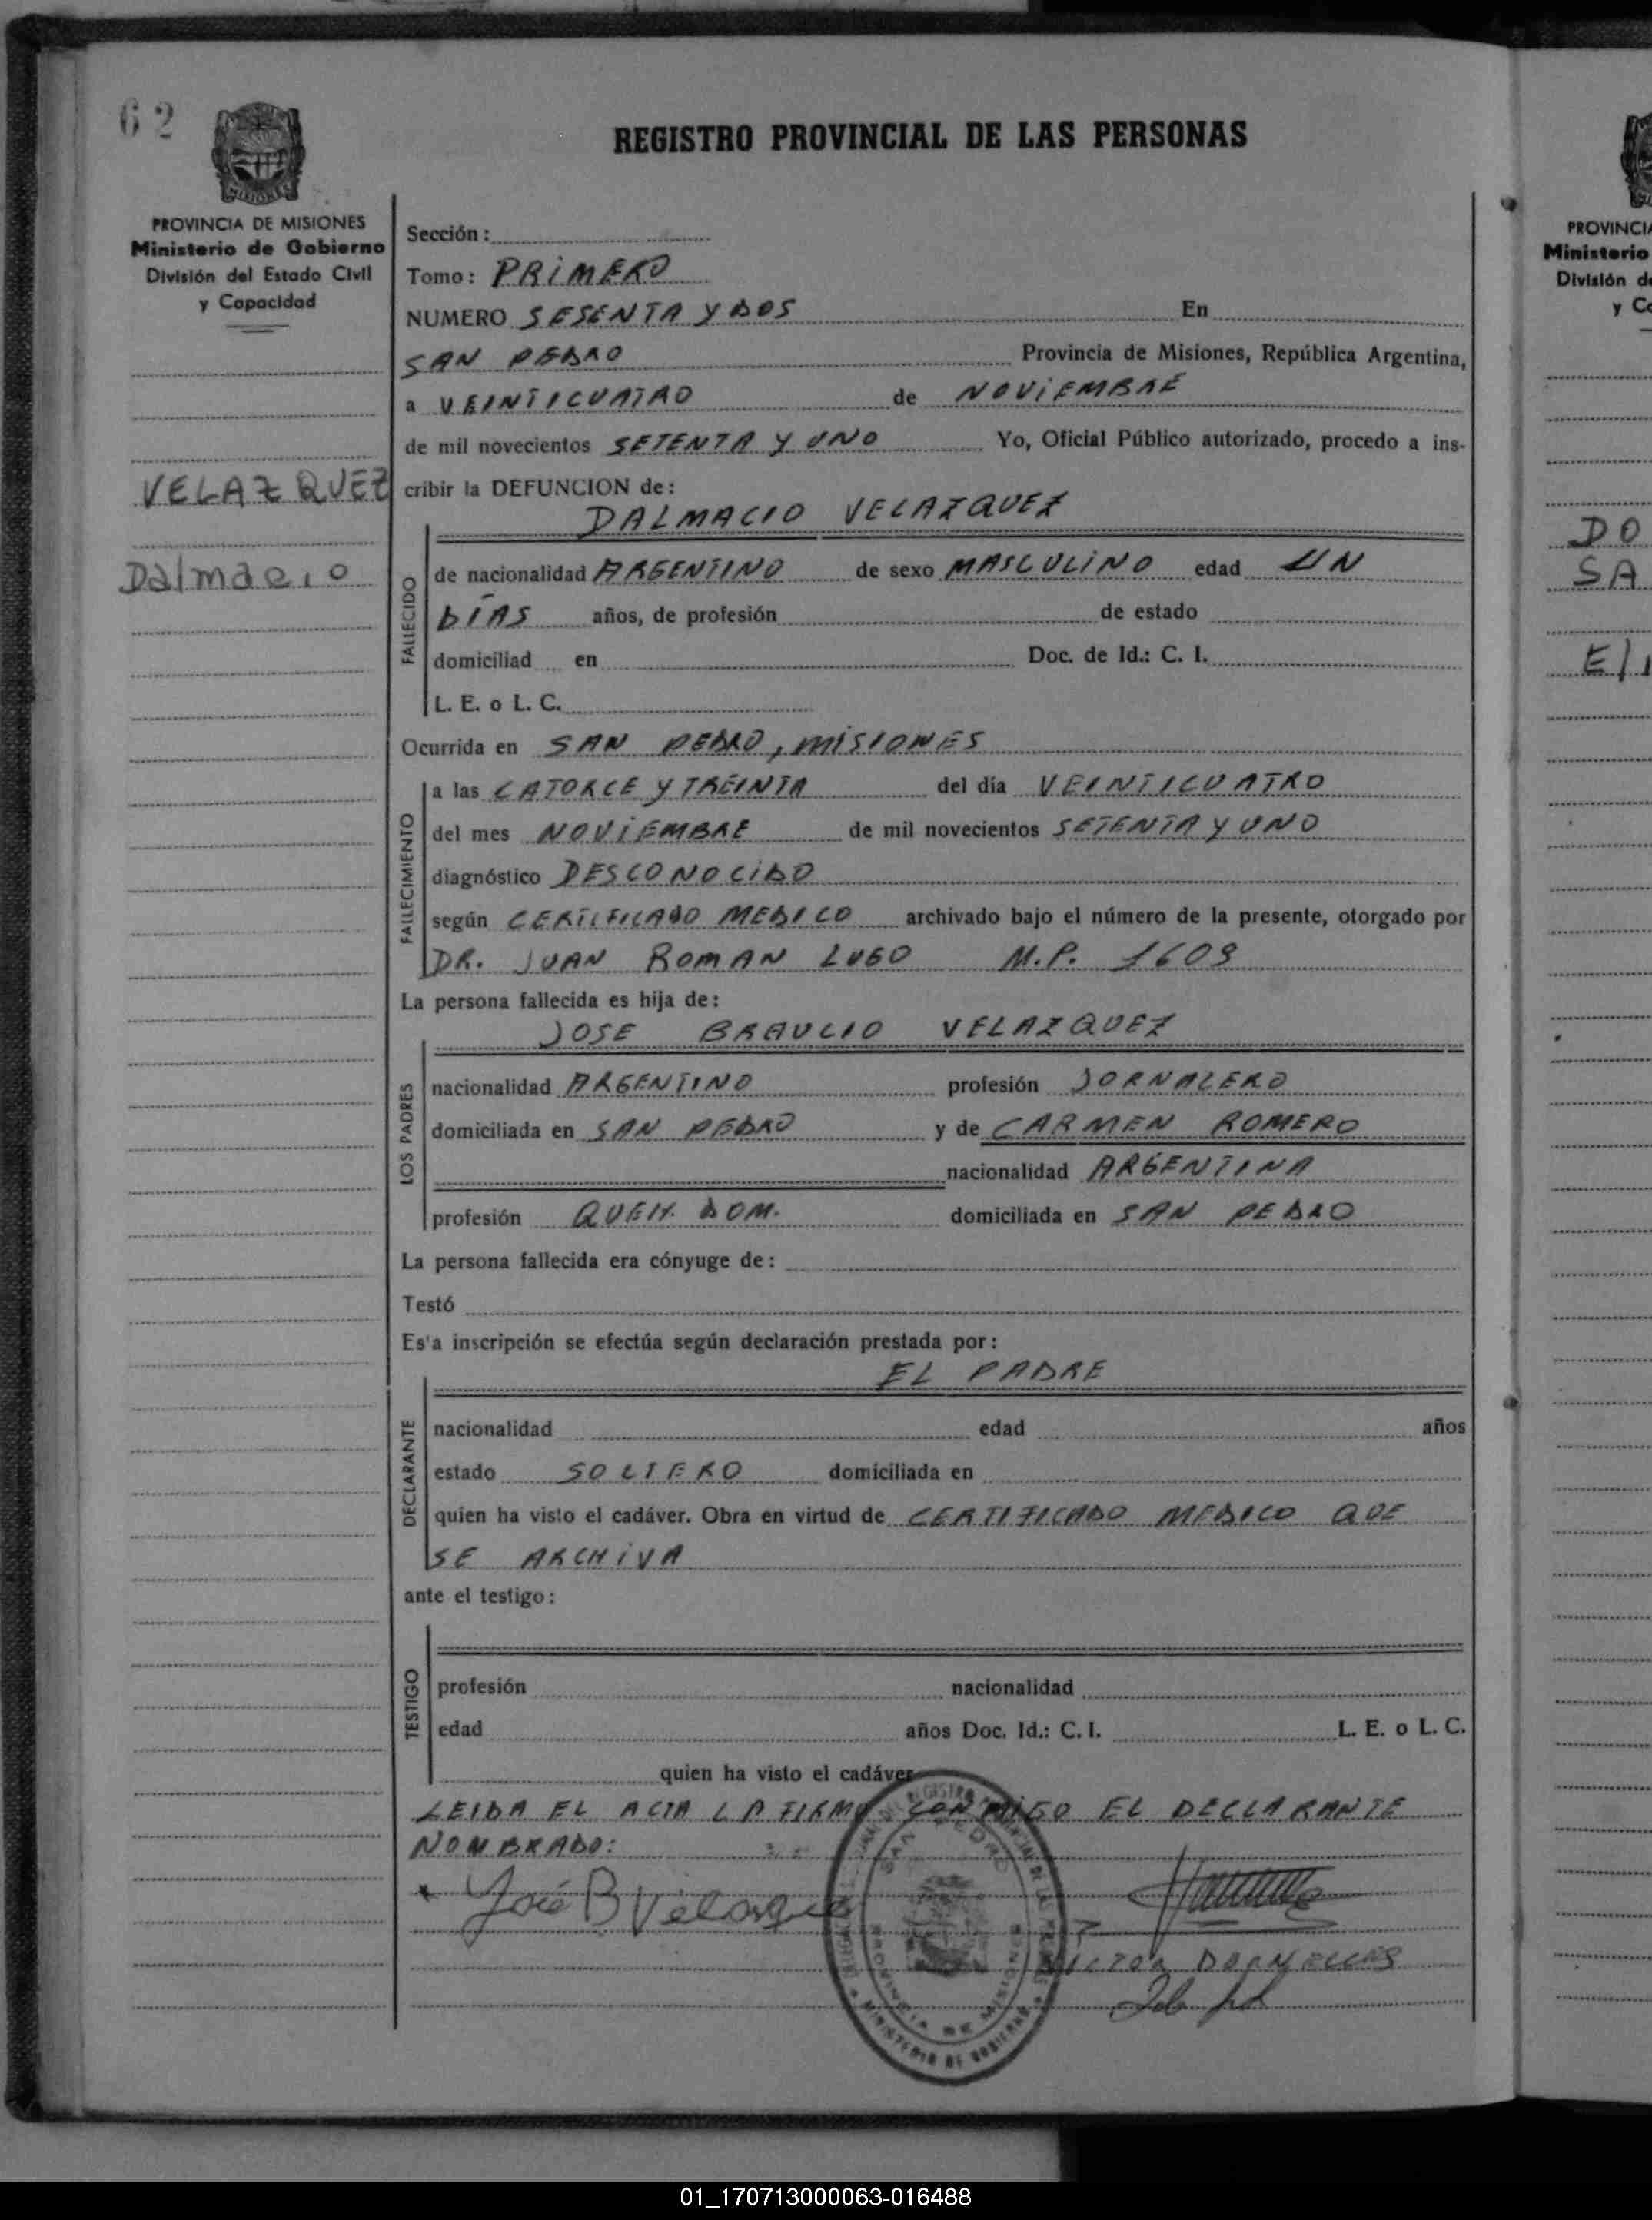 62
REGISTRO PROVINCIAL DE LAS PERSONAS
MISIONES
PROVINCIA DE MISIONES
Ministerio de Gobierno
División del Estado Civil
y Capacidad
VELAZQUEZ
Dalmacio
Sección:
Tomo: PRIMERO
NUMERO SESENTA Y DOS En
SAN PEDRO Provincia de Misiones, República Argentina,
a VEINTICUATRO de NOVIEMBRE
de mil novecientos SETENTA Y UNO Yo, Oficial Público autorizado, procedo a ins-
cribir la DEFUNCION de:
DALMACIO VELAZQUEZ
FALLECIDO
de nacionalidad ARGENTINO de sexo MASCULINO edad UN
DÍAS años, de profesión de estado
domiciliad en Doc. de Id.: C. I.
L. E. o L. C.
Ocurrida en SAN PEDRO, MISIONES
FALLECIMIENTO
a las CATORCE Y TREINTA del día VEINTICUATRO
del mes NOVIEMBRE de mil novecientos SETENTA Y UNO
diagnóstico DESCONOCIDO
según CERTIFICADO MEDICO archivado bajo el número de la presente, otorgado por
DR. JUAN ROMAN LUGO M.P. 1609
La persona fallecida es hija de:
JOSE BRAULIO VELAZQUEZ
LOS PADRES
nacionalidad ARGENTINO profesión JORNALERO
domiciliada en SAN PEDRO y de CARMEN ROMERO
nacionalidad ARGENTINA
profesión QUEH. DOM. domiciliada en SAN PEDRO
La persona fallecida era cónyuge de:
Testó
Es'a inscripción se efectúa según declaración prestada por:
EL PADRE
DECLARANTE
nacionalidad edad años
estado SOLTERO domiciliada en
quien ha visto el cadáver. Obra en virtud de CERTIFICADO MEDICO QUE
SE ARCHIVA
ante el testigo:
TESTIGO
profesión nacionalidad
edad años Doc. Id.: C. I. L. E. o L. C.
quien ha visto el cadáver
LEIDA EL ACTA LA FIRMA CONMIGO EL DECLARANTE
NOMBRADO:
José B Velasquez
VICTOR DORNELLES
PROVINCIA DE MISIONES
MINISTERIO DE GOBIERNO
PROVINCIA
Ministerio
División de
y Ca
DO
SA
01_170713000063-016488